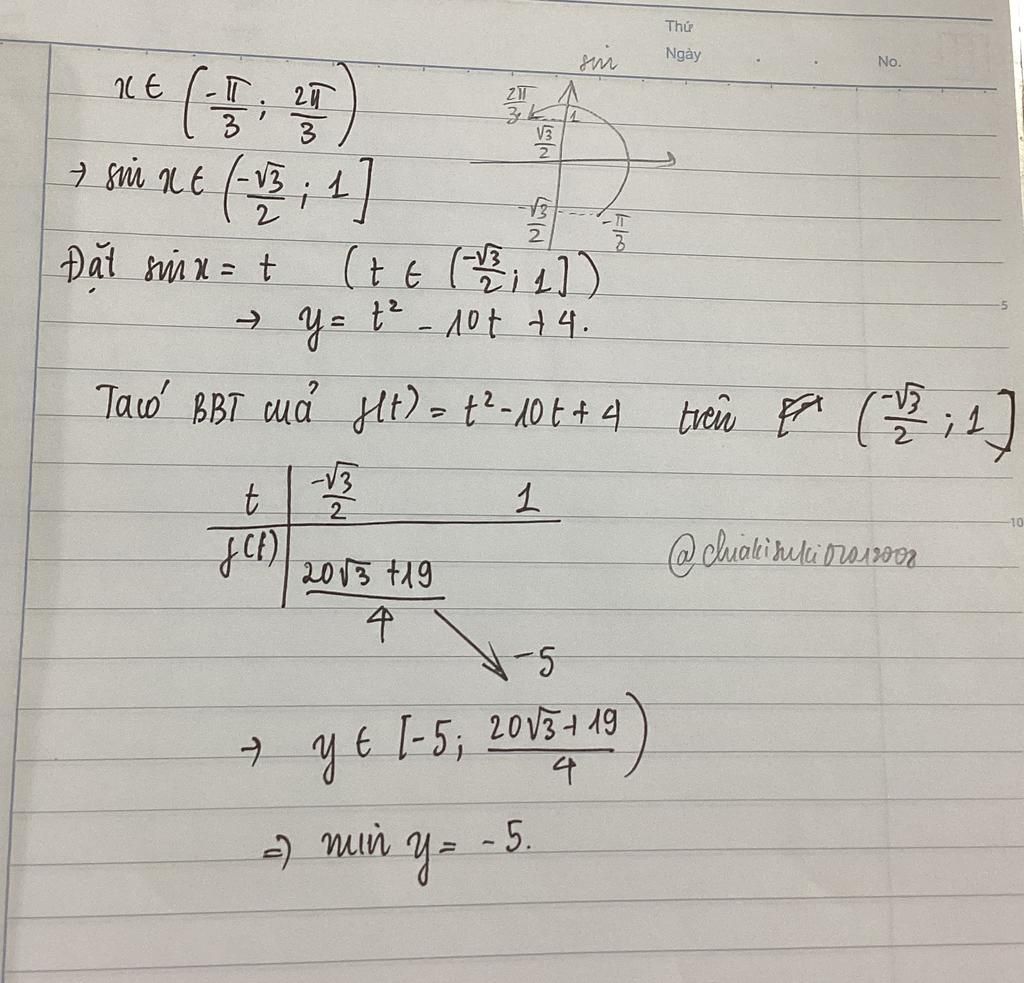 Thứ
Ngày . . No.
x ∈ (-π/3 ; 2π/3)
→ sin x ∈ (-√3/2 ; 1]
sin
2π/3
1
√3/2
-√3/2
-π/3
Đặt sin x = t (t ∈ (-√3/2 ; 1])
→ y = t² - 10t + 4.
5
Ta có BBT cuả f(t) = t² - 10t + 4 trên (-√3/2 ; 1]
t | -√3/2 1
10
f(t) | (20√3 + 19)/4 ↘ -5
→ y ∈ [-5; (20√3 + 19)/4)
⇒ min y = -5.